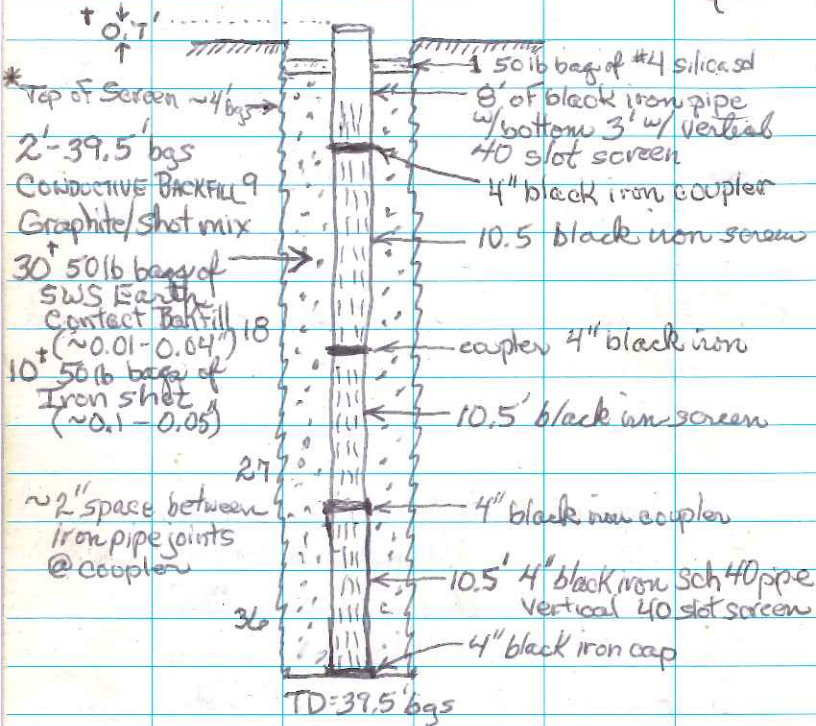 † 0.7'
*
Top of Screen ~4' bgs
2'-39.5' bgs
CONDUCTIVE BACKFILL 9
Graphite/Shot mix
30† 50lb bags of
SWS Earth
Contact Bakfill 18
(~0.01-0.04")
10† 50lb bags of
Iron shot
(~0.1-0.05")
27
~2" space between
iron pipe joints
@ coupler
36
1 50lb bag of #4 silica sd
8' of black iron pipe
w/bottom 3' w/ vertical
40 slot screen
4" black iron coupler
10.5 black iron screen
coupler 4" black iron
10.5' black irn screen
4" black iron coupler
10.5' 4" black iron sch 40 ppe
vertical 40 slot screen
4" black iron cap
TD=39.5' bgs